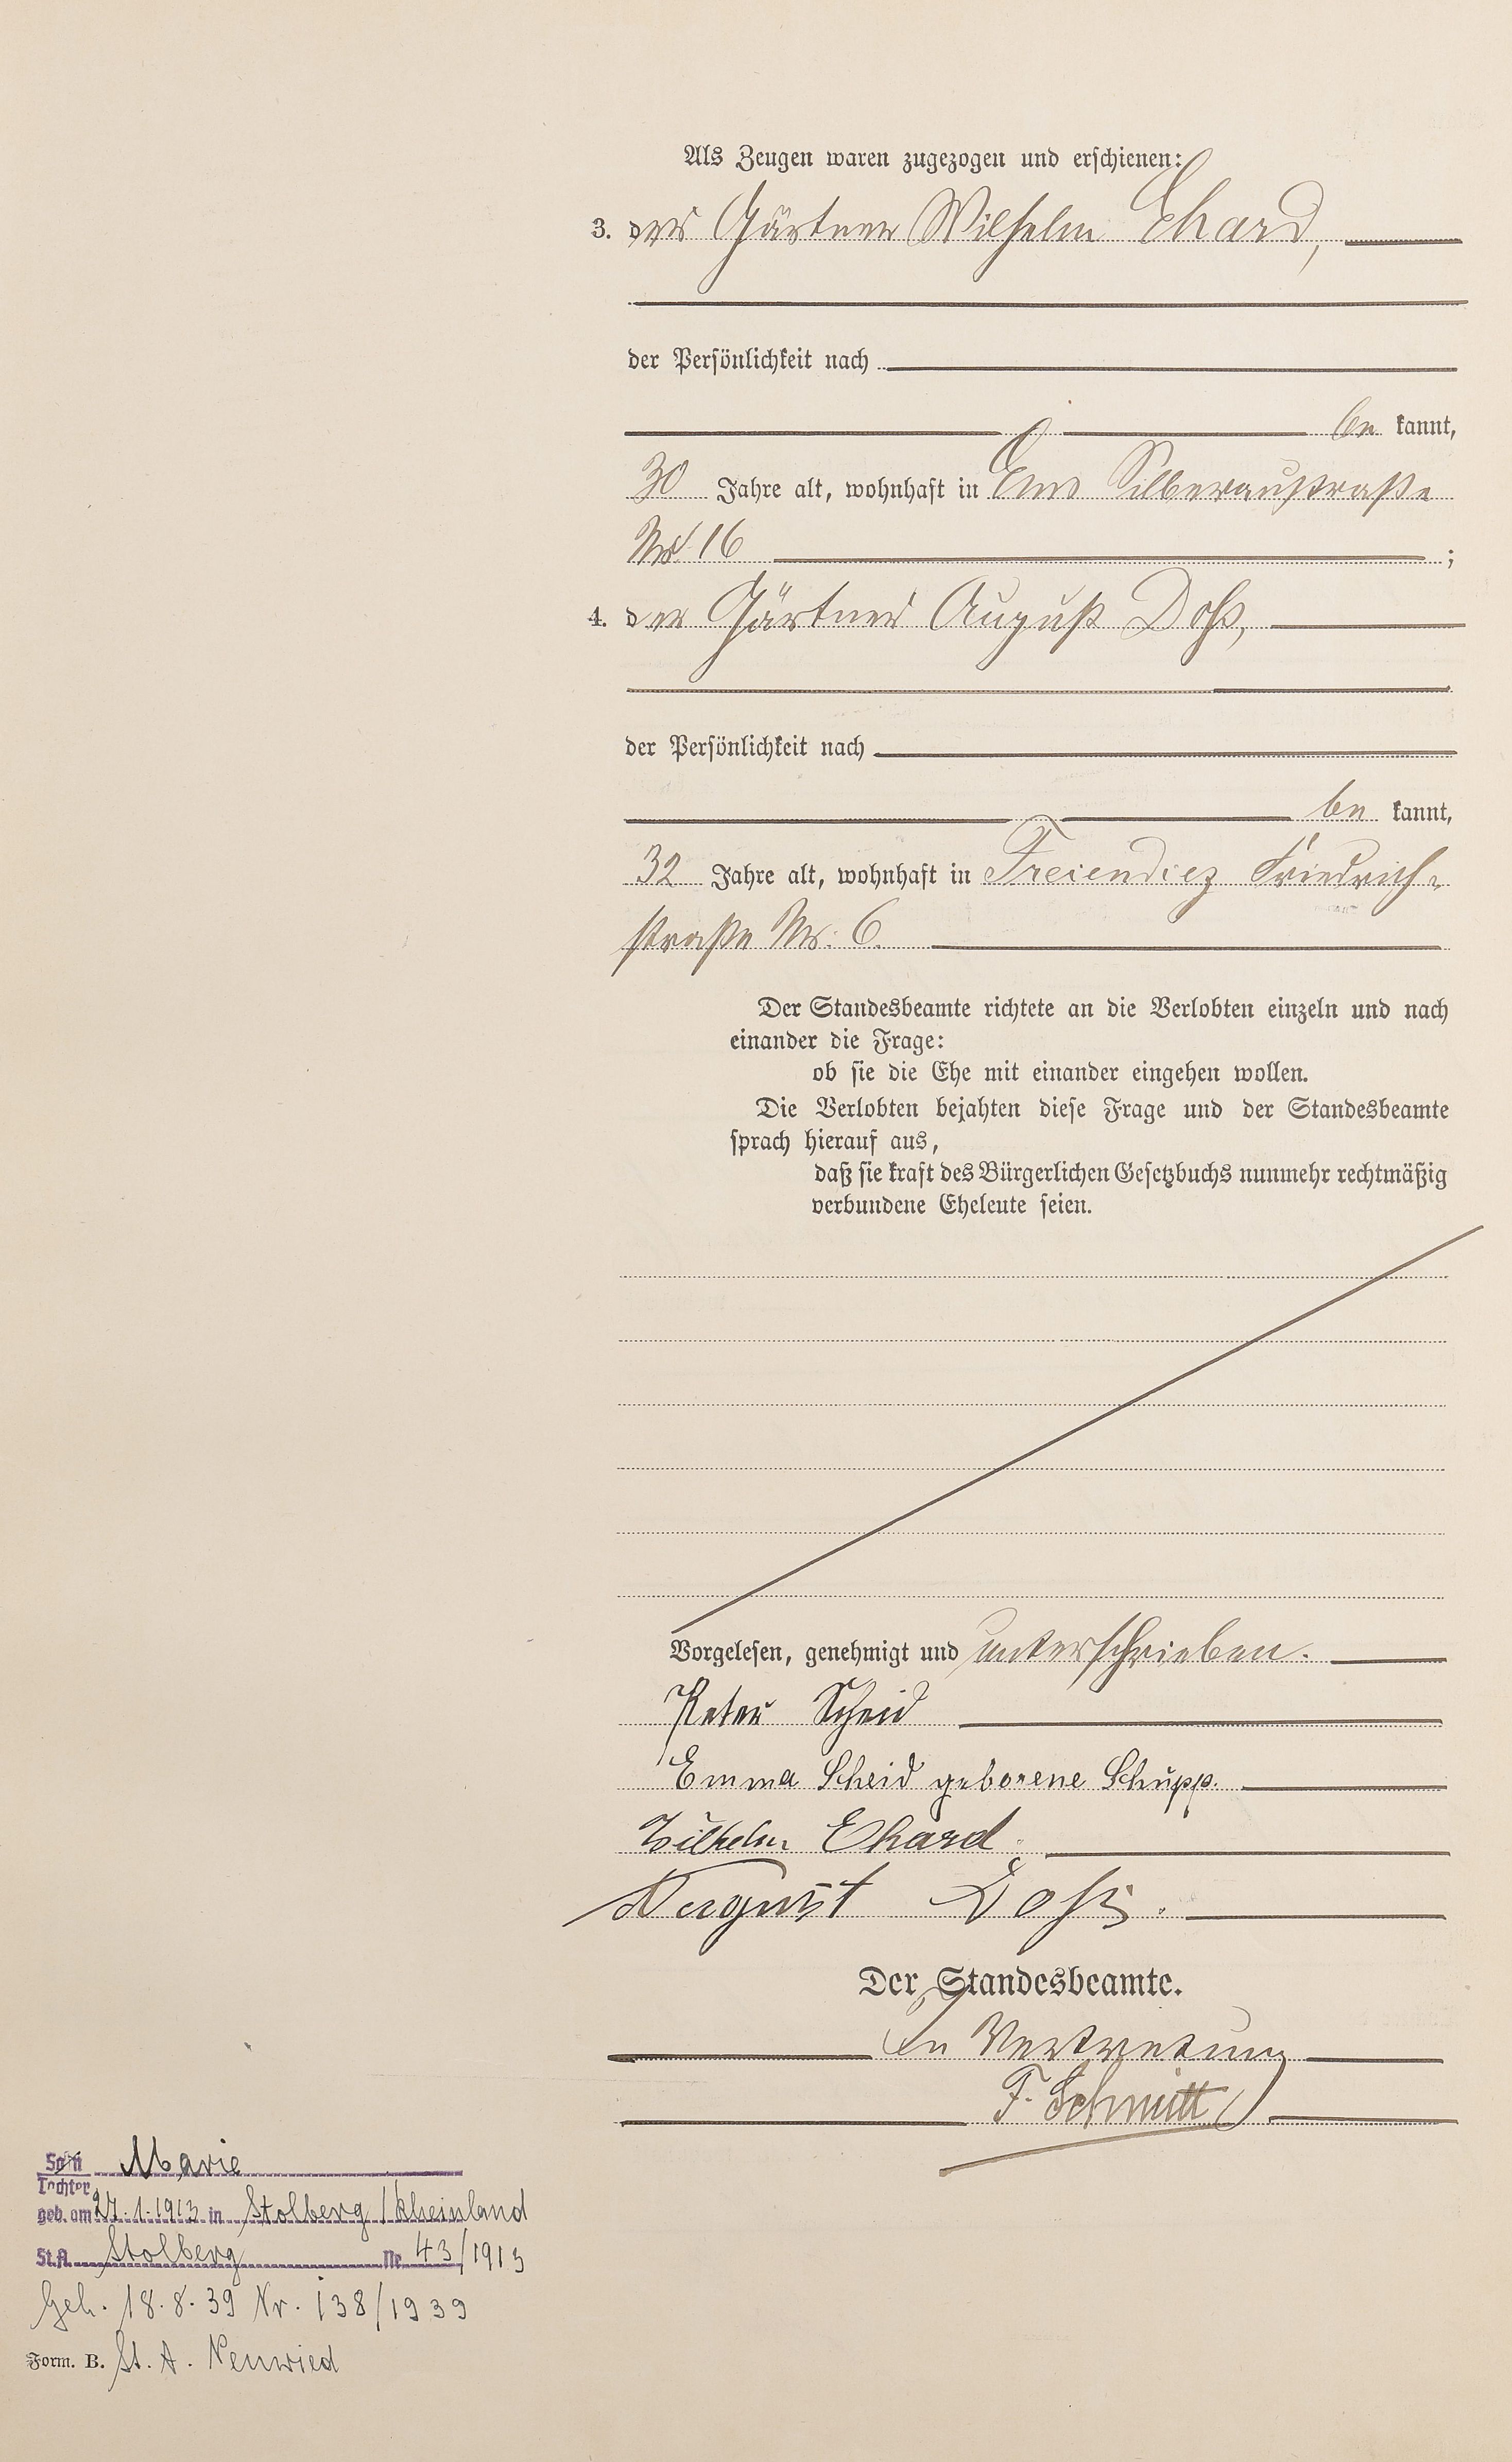 Als Zeugen waren zugezogen und erschienen:
3. der Gärtner Wilhelm Ehard,
der Persönlichkeit nach
be kannt,
30 Jahre alt, wohnhaft in Ems Silberaustraße
Nr. 16 ;
4. der Gärtner August Doß,
der Persönlichkeit nach
be kannt,
32 Jahre alt, wohnhaft in Freiendiez Friedrich-
straße Nr. 6.
Der Standesbeamte richtete an die Verlobten einzeln und nach
einander die Frage:
ob sie die Ehe mit einander eingehen wollen.
Die Verlobten bejahten diese Frage und der Standesbeamte
sprach hierauf aus,
daß sie kraft des Bürgerlichen Gesetzbuchs nunmehr rechtmäßig
verbundene Eheleute seien.
Vorgelesen, genehmigt und unterschrieben.
Peter Scheid
Emma Scheid geborene Schupp.
Wilhelm Ehard.
August Doß.
Der Standesbeamte.
In Vertretung
F. Schmitt
Sohn Marie
Tochter
geb. am 27.1.1913 in Stolberg/Rheinland
St.A. Stolberg Nr. 43/1913
Geh. 18.8.39 Nr. 138/1939
Form. B. St. A. Neuwied